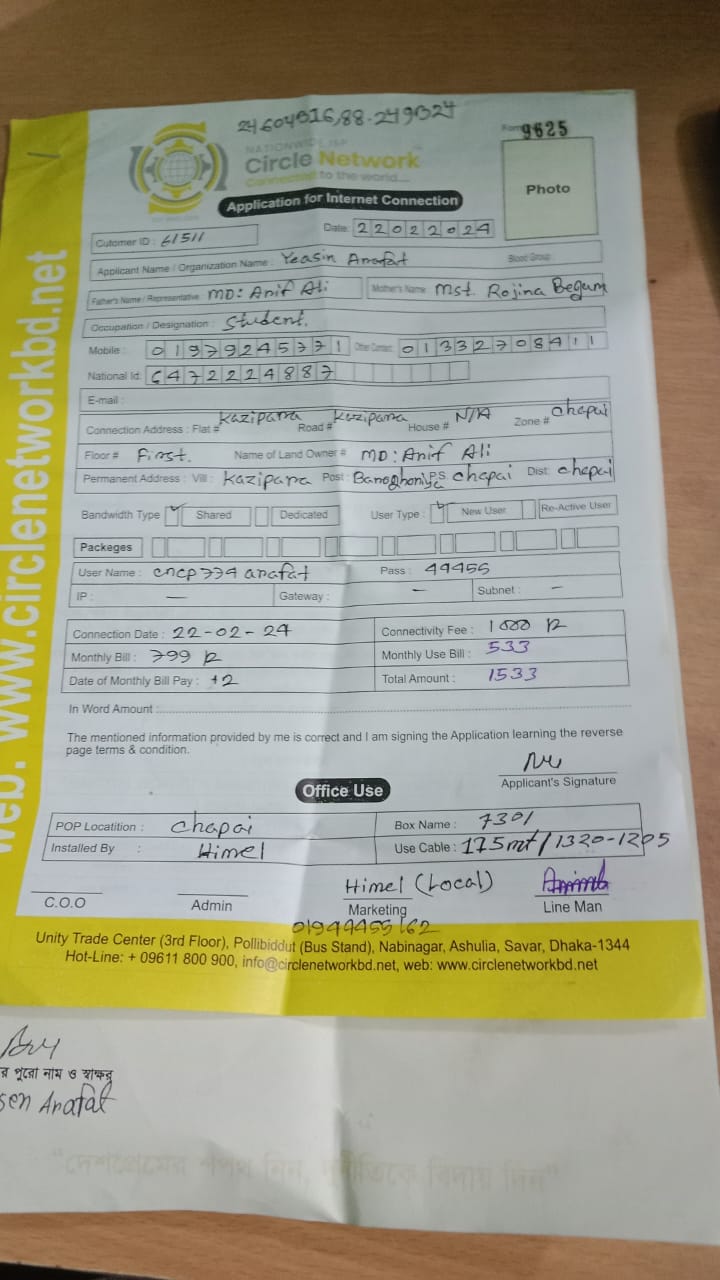 24604516,88.249324
Form 9625
NATIONWIDE ISP
Circle Network
Connected to the world....
Photo
Application for Internet Connection
Date: 22022024
Cutomer ID : 61511
Applicant Name / Organization Name : Yeasin Arafat Blood Group:
Father's Name / Representative: MD: Arif Ali Mother's Name: Mst. Rojina Begum
Occupation / Designation : Student.
Mobile : 01979245771 Other Contact: 01332708411
National Id: 6472224887
E-mail :
Connection Address : Flat # Kazipara Road # Kazipara House # N/A Zone # Chapai
Floor # First. Name of Land Owner # MD: Arif Ali
Permanent Address : Vill : Kazipara Post : PS Chapai Dist: Chapai
Bandwidth Type Shared Dedicated User Type : New User Re-Active User
Packeges
User Name : cncp774 arafat Pass : 44455
IP : — Gateway : — Subnet : —
Connection Date : 22-02-24 Connectivity Fee : 1000
Monthly Bill : 799 Monthly Use Bill : 533
Date of Monthly Bill Pay : Total Amount : 1533
In Word Amount :
The mentioned information provided by me is correct and I am signing the Application learning the reverse
page terms & condition.
Applicant's Signature
Office Use
POP Locatition : Chapai Box Name : 7301
Installed By : Himel Use Cable : 115mt/1320-1205
Himel (Local)
C.O.O Admin Marketing Line Man
01944455162
Unity Trade Center (3rd Floor), Pollibiddut (Bus Stand), Nabinagar, Ashulia, Savar, Dhaka-1344
Hot-Line: + 09611 800 900, info@circlenetworkbd.net, web: www.circlenetworkbd.net
web: www.circlenetworkbd.net
র পুরো নাম ও স্বাক্ষর
Arafat
"দেশপ্রেমের শপথ নিন, দুর্নীতিকে বিদায় দিন"